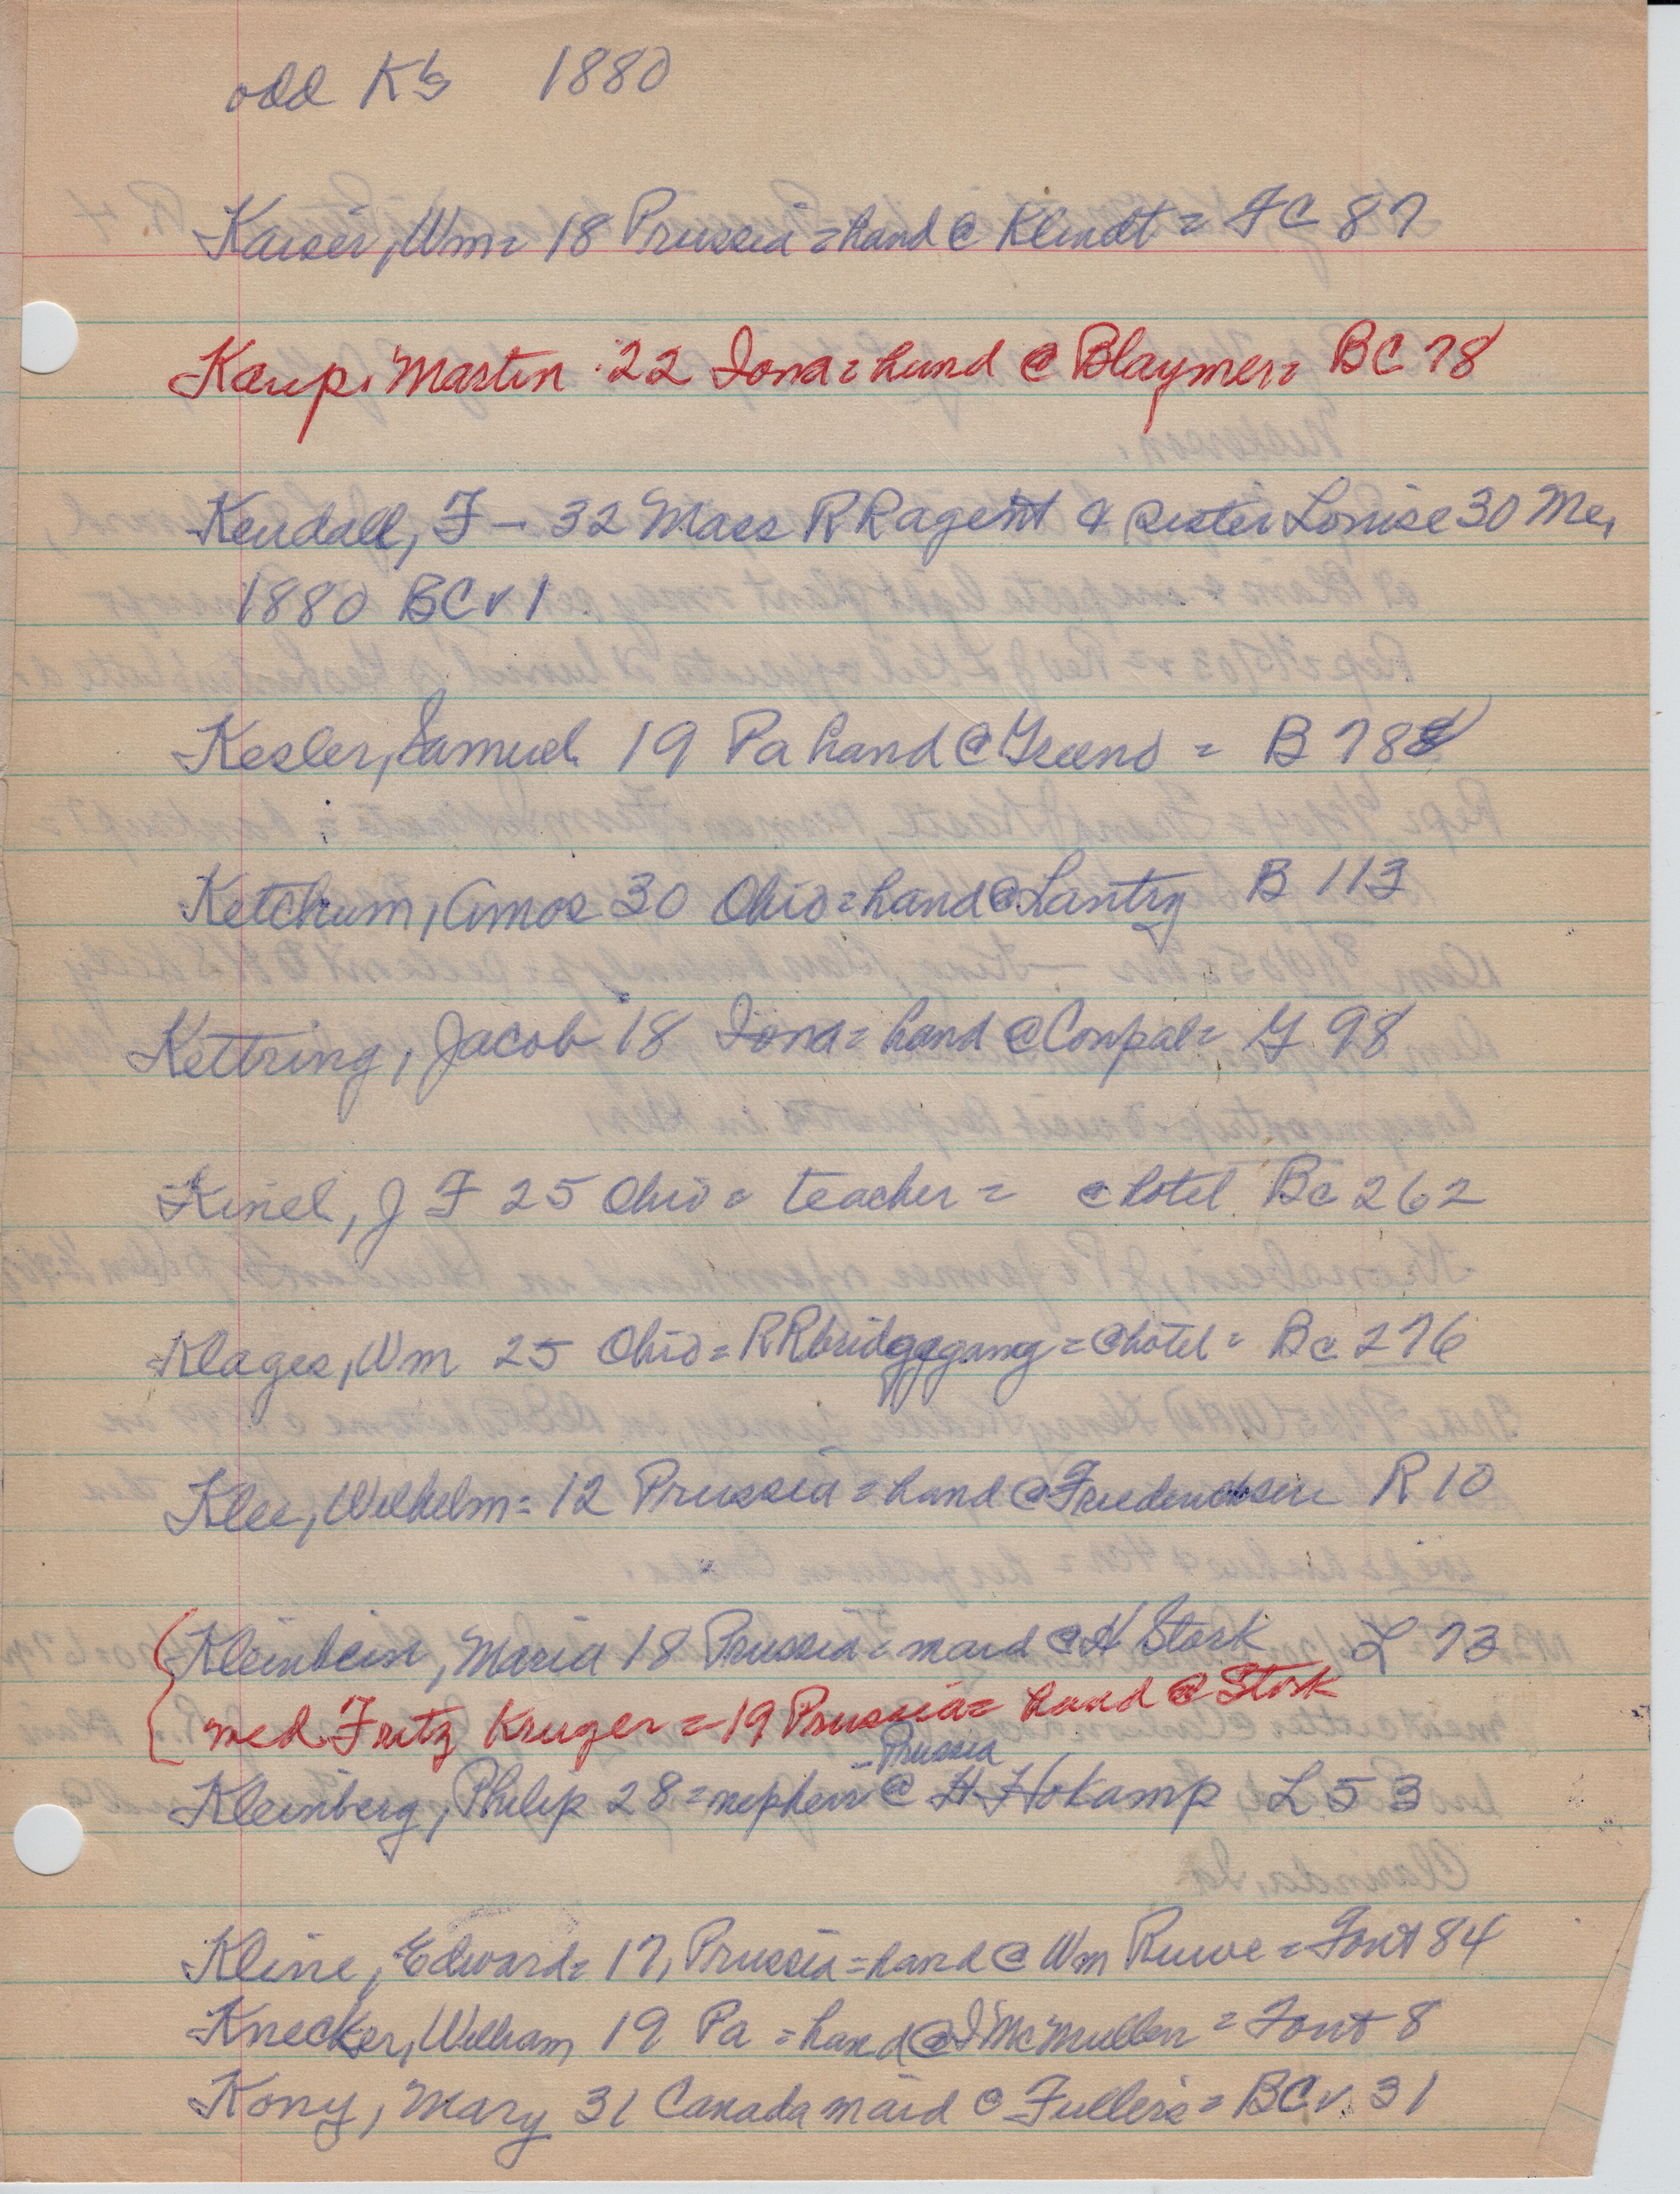 odd K's 1880
Kaiser, Wm = 18 Prussia = hand @ Klindt = FC 87
Karp, Martin 22 Iowa = hand @ Blaymer = BC 78
Kendall, F - 32 Mass RR agent & sister Louise 30 Me,
1880 BCv 1
Kesler, Samuel 19 Pa hand @ Greens = B 788
Ketchum, Amos 30 Ohio = hand @ Lantry B 113
Kettring, Jacob 18 Iowa = hand @ = G 98
Kinel, J F 25 Ohio = teacher = @ hotel Bc 262
Klages, Wm 25 Ohio = RR bridge gang = @ hotel = Bc 276
Klee, Wilhelm = 12 Prussia = hand @ Friederichsen R 10
Kleinbein, Maria 18 Prussia = maid @ H Stork L 73
med Fritz Kruger = 19 Prussia = hand @ Stork
- Prussia
Kleinberg, Philip 28 = nephew @ H Hokamp L 53
Kline, Edward = 17, Prussia = hand @ Wm Ruwe = Font 84
Knecker, William 19 Pa = hand @ J McMullen = Font 8
Kony, Mary 31 Canada maid @ Fullers = BCv. 31